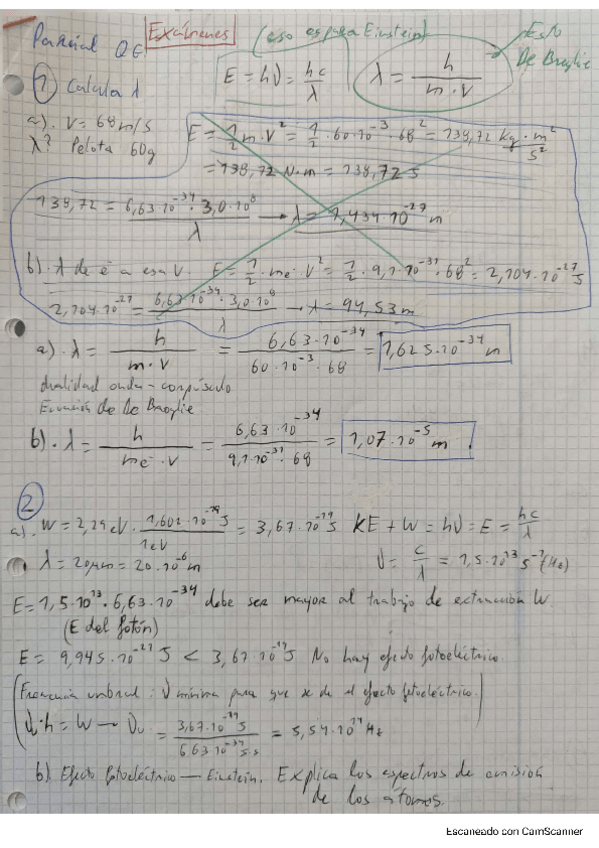 Parcial QG Exámenes (eso es para Einstein) Esto
De Broglie
E = hν = hc/λ    λ = h/(m · v)
1) Calcula λ
a). v = 68 m/s    E = 1/2 m·v² = 1/2 · 60·10⁻³ · 68² = 138,72 kg·m²/s²
λ? Pelota 60g
= 138,72 N·m = 138,72 J
138,72 = 6,63·10⁻³⁴ · 3,0·10⁸ / λ → λ = 1,434·10⁻²⁷ m
b). λ de é a esa v. E = 1/2 · me⁻ · v² = 1/2 · 9,1·10⁻³¹ · 68² = 2,104·10⁻²⁷ J
2,104·10⁻²⁷ = 6,63·10⁻³⁴ · 3,0·10⁸ / λ → λ = 94,53 m
a). λ = h/(m · v) = 6,63·10⁻³⁴/(60·10⁻³ · 68) = 1,625·10⁻³⁴ m
dualidad onda-corpúsculo
Ecuación de De Broglie
b). λ = h/(me⁻ · v) = 6,63·10⁻³⁴/(9,1·10⁻³¹ · 68) = 1,07·10⁻⁵ m.
2
a). W = 2,29 eV · 1,602·10⁻¹⁹ J/1 eV = 3,67·10⁻¹⁹ J    KE + W = hν = E = hc/λ
λ = 20 μm = 20·10⁻⁶ m    ν = c/λ = 1,5·10¹³ s⁻¹ (Hz)
E = 1,5·10¹³ · 6,63·10⁻³⁴ debe ser mayor al trabajo de extracción W.
(E del fotón)
E = 9,945·10⁻²¹ J < 3,67·10⁻¹⁹ J No hay efecto fotoeléctrico.
(Frecuencia umbral: ν mínima para que se dé el efecto fotoeléctrico.)
νu·h = W → νu = 3,67·10⁻¹⁹ J/6,63·10⁻³⁴ J·s = 5,54·10¹⁴ Hz
b) Efecto fotoeléctrico — Einstein. Explica los espectros de emisión
de los átomos.
Escaneado con CamScanner